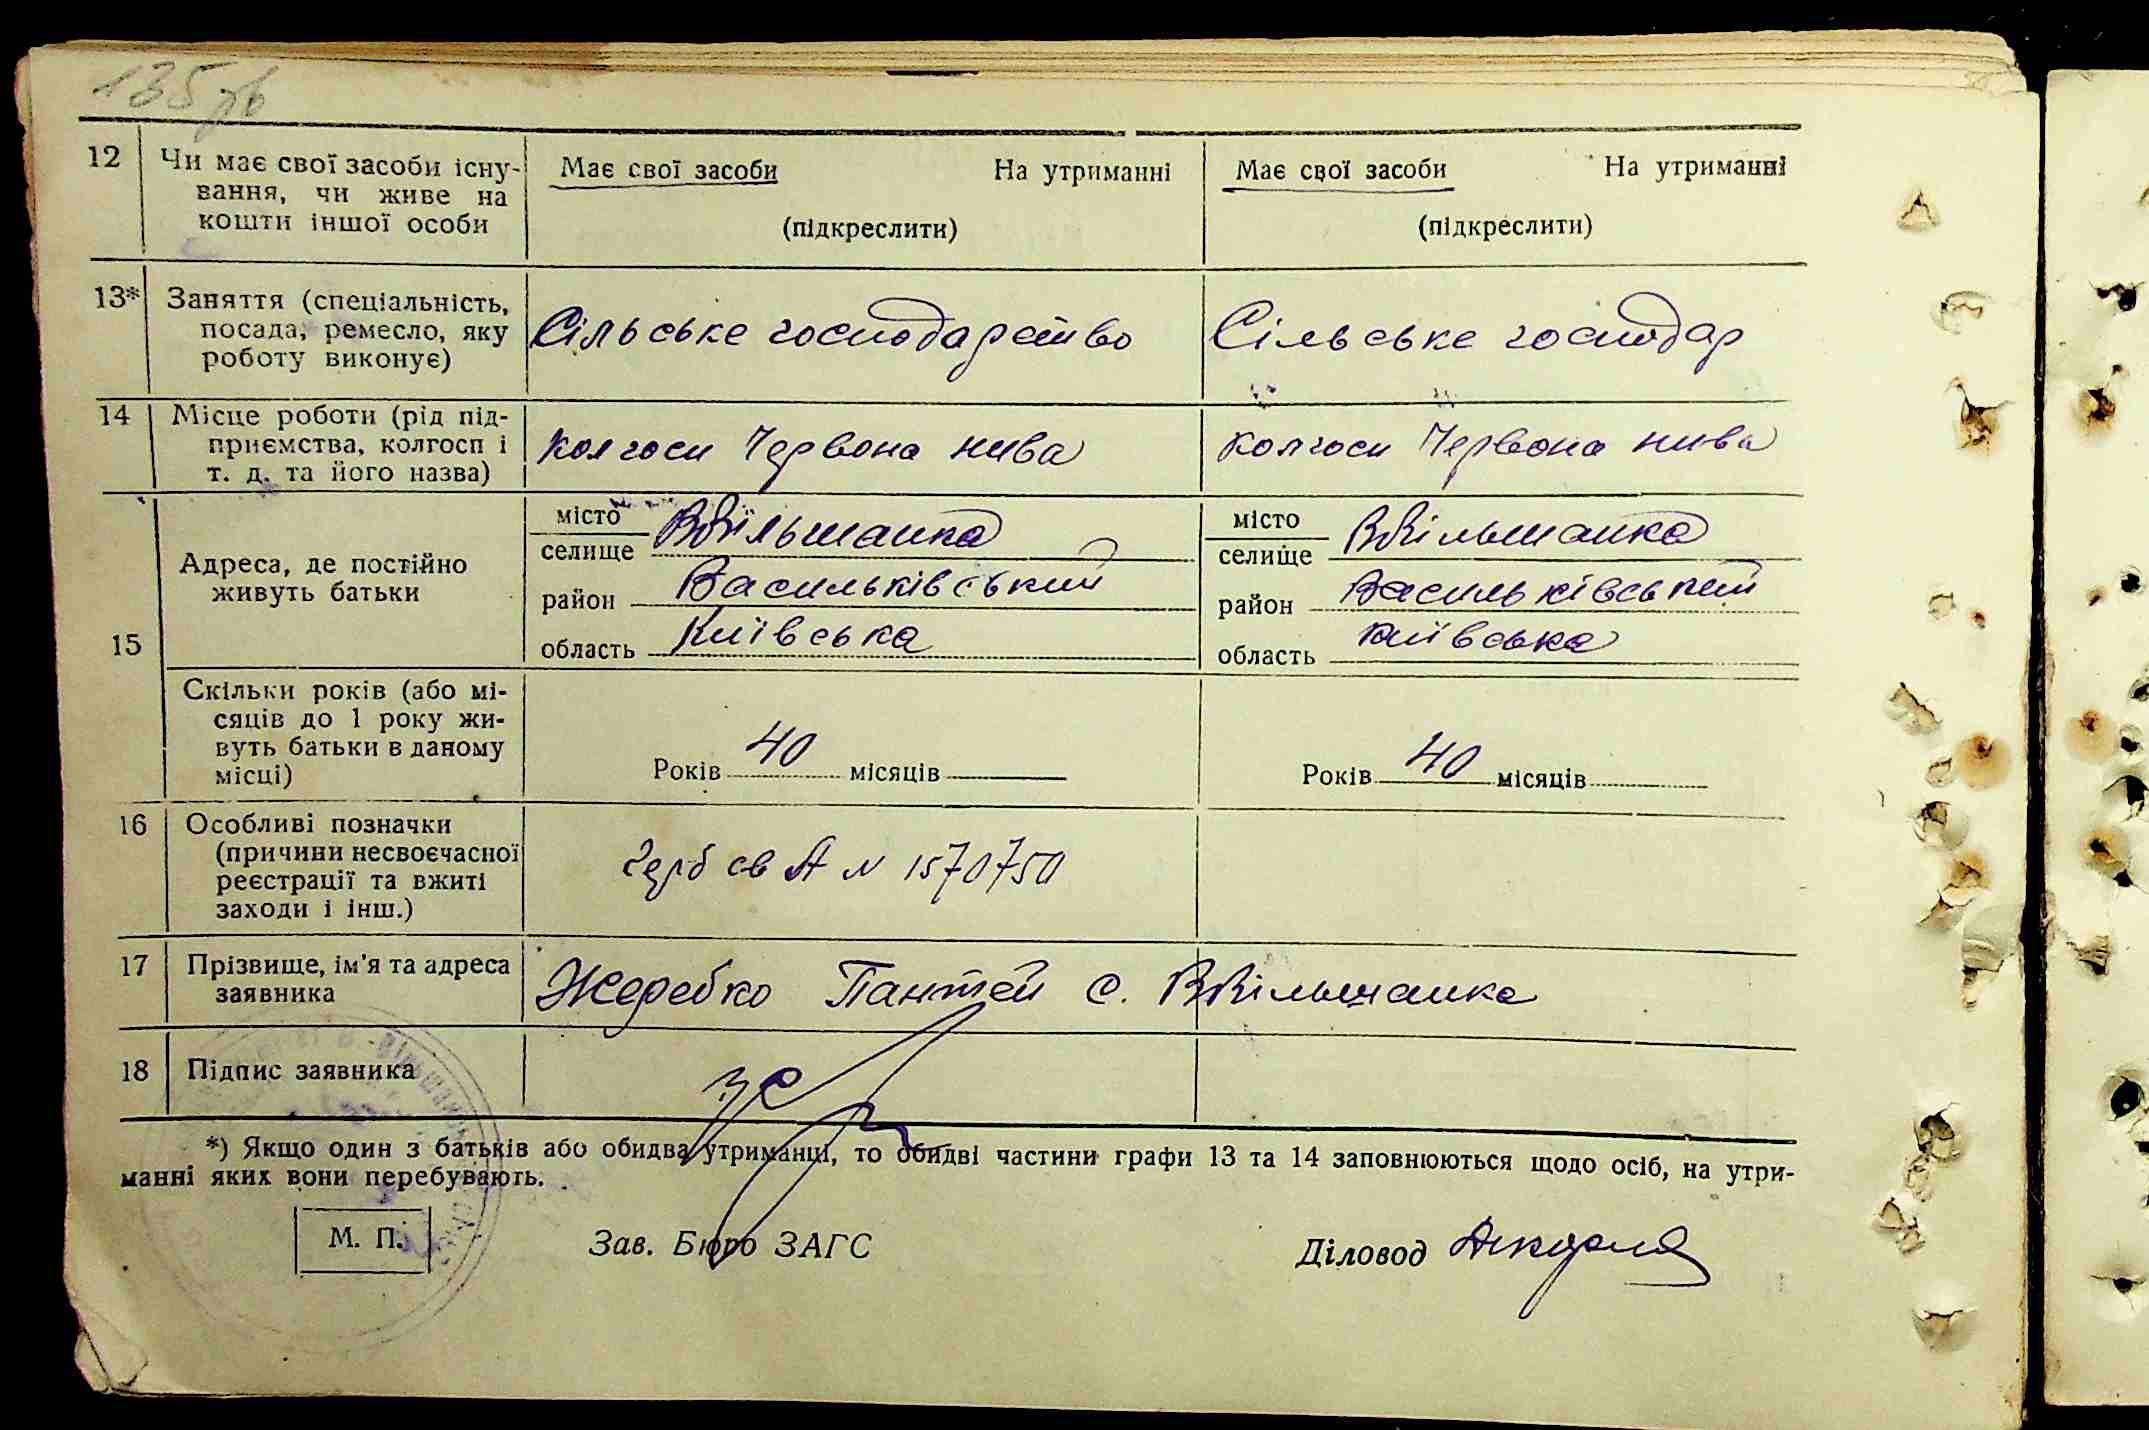 135 зв
12 Чи має свої засоби існу- Має свої засоби На утриманні Має свої засоби На утриманні
вання, чи живе на
кошти іншої особи (підкреслити) (підкреслити)
13* Заняття (спеціальність,
посада, ремесло, яку Сільське господарство Сільське господар
роботу виконує)
14 Місце роботи (рід під-
приємства, колгосп і колгосп Червона нива колгосп Червона нива
т. д. та його назва)
місто ВВільшанка місто ВВільшанка
селище селище
15 Адреса, де постійно
живуть батьки район Васильківський район Васильківський
область Київська область Київська
Скільки років (або мі-
сяців до 1 року жи-
вуть батьки в даному Років 40 місяців Років 40 місяців
місці)
16 Особливі позначки
(причини несвоєчасної герб св А № 1570750
реєстрації та вжиті
заходи і інш.)
17 Прізвище, ім'я та адреса Жеребко Пантей с. ВВільшанка
заявника
18 Підпис заявника
*) Якщо один з батьків або обидва утриманці, то обидві частини графи 13 та 14 заповнюються щодо осіб, на утри-
манні яких вони перебувають.
М. П. Зав. Бюро ЗАГС Діловод